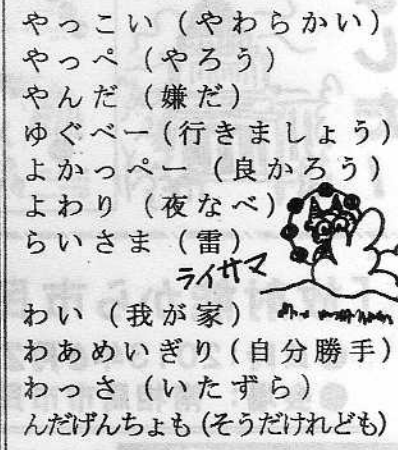 やっこい（やわらかい）
やっぺ（やろう）
やんだ（嫌だ）
ゆぐべー（行きましょう）
よかっぺー（良かろう）
よわり（夜なべ）
らいさま（雷）
ライサマ
わい（我が家）
わあめいぎり（自分勝手）
わっさ（いたずら）
んだげんちょも（そうだけれども）